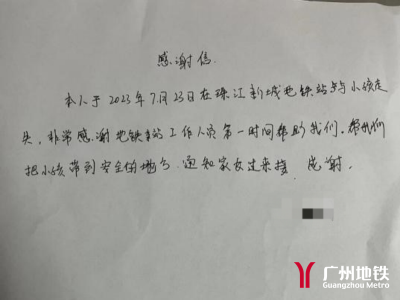 感谢信.
本人于2023年7月23日在珠江新城地铁站与小孩走
失,非常感谢地铁站的工作人员第一时间帮助我们。帮我们
把小孩带到安全的地方,通知家长过来接 感谢。
广州地铁
Guangzhou Metro